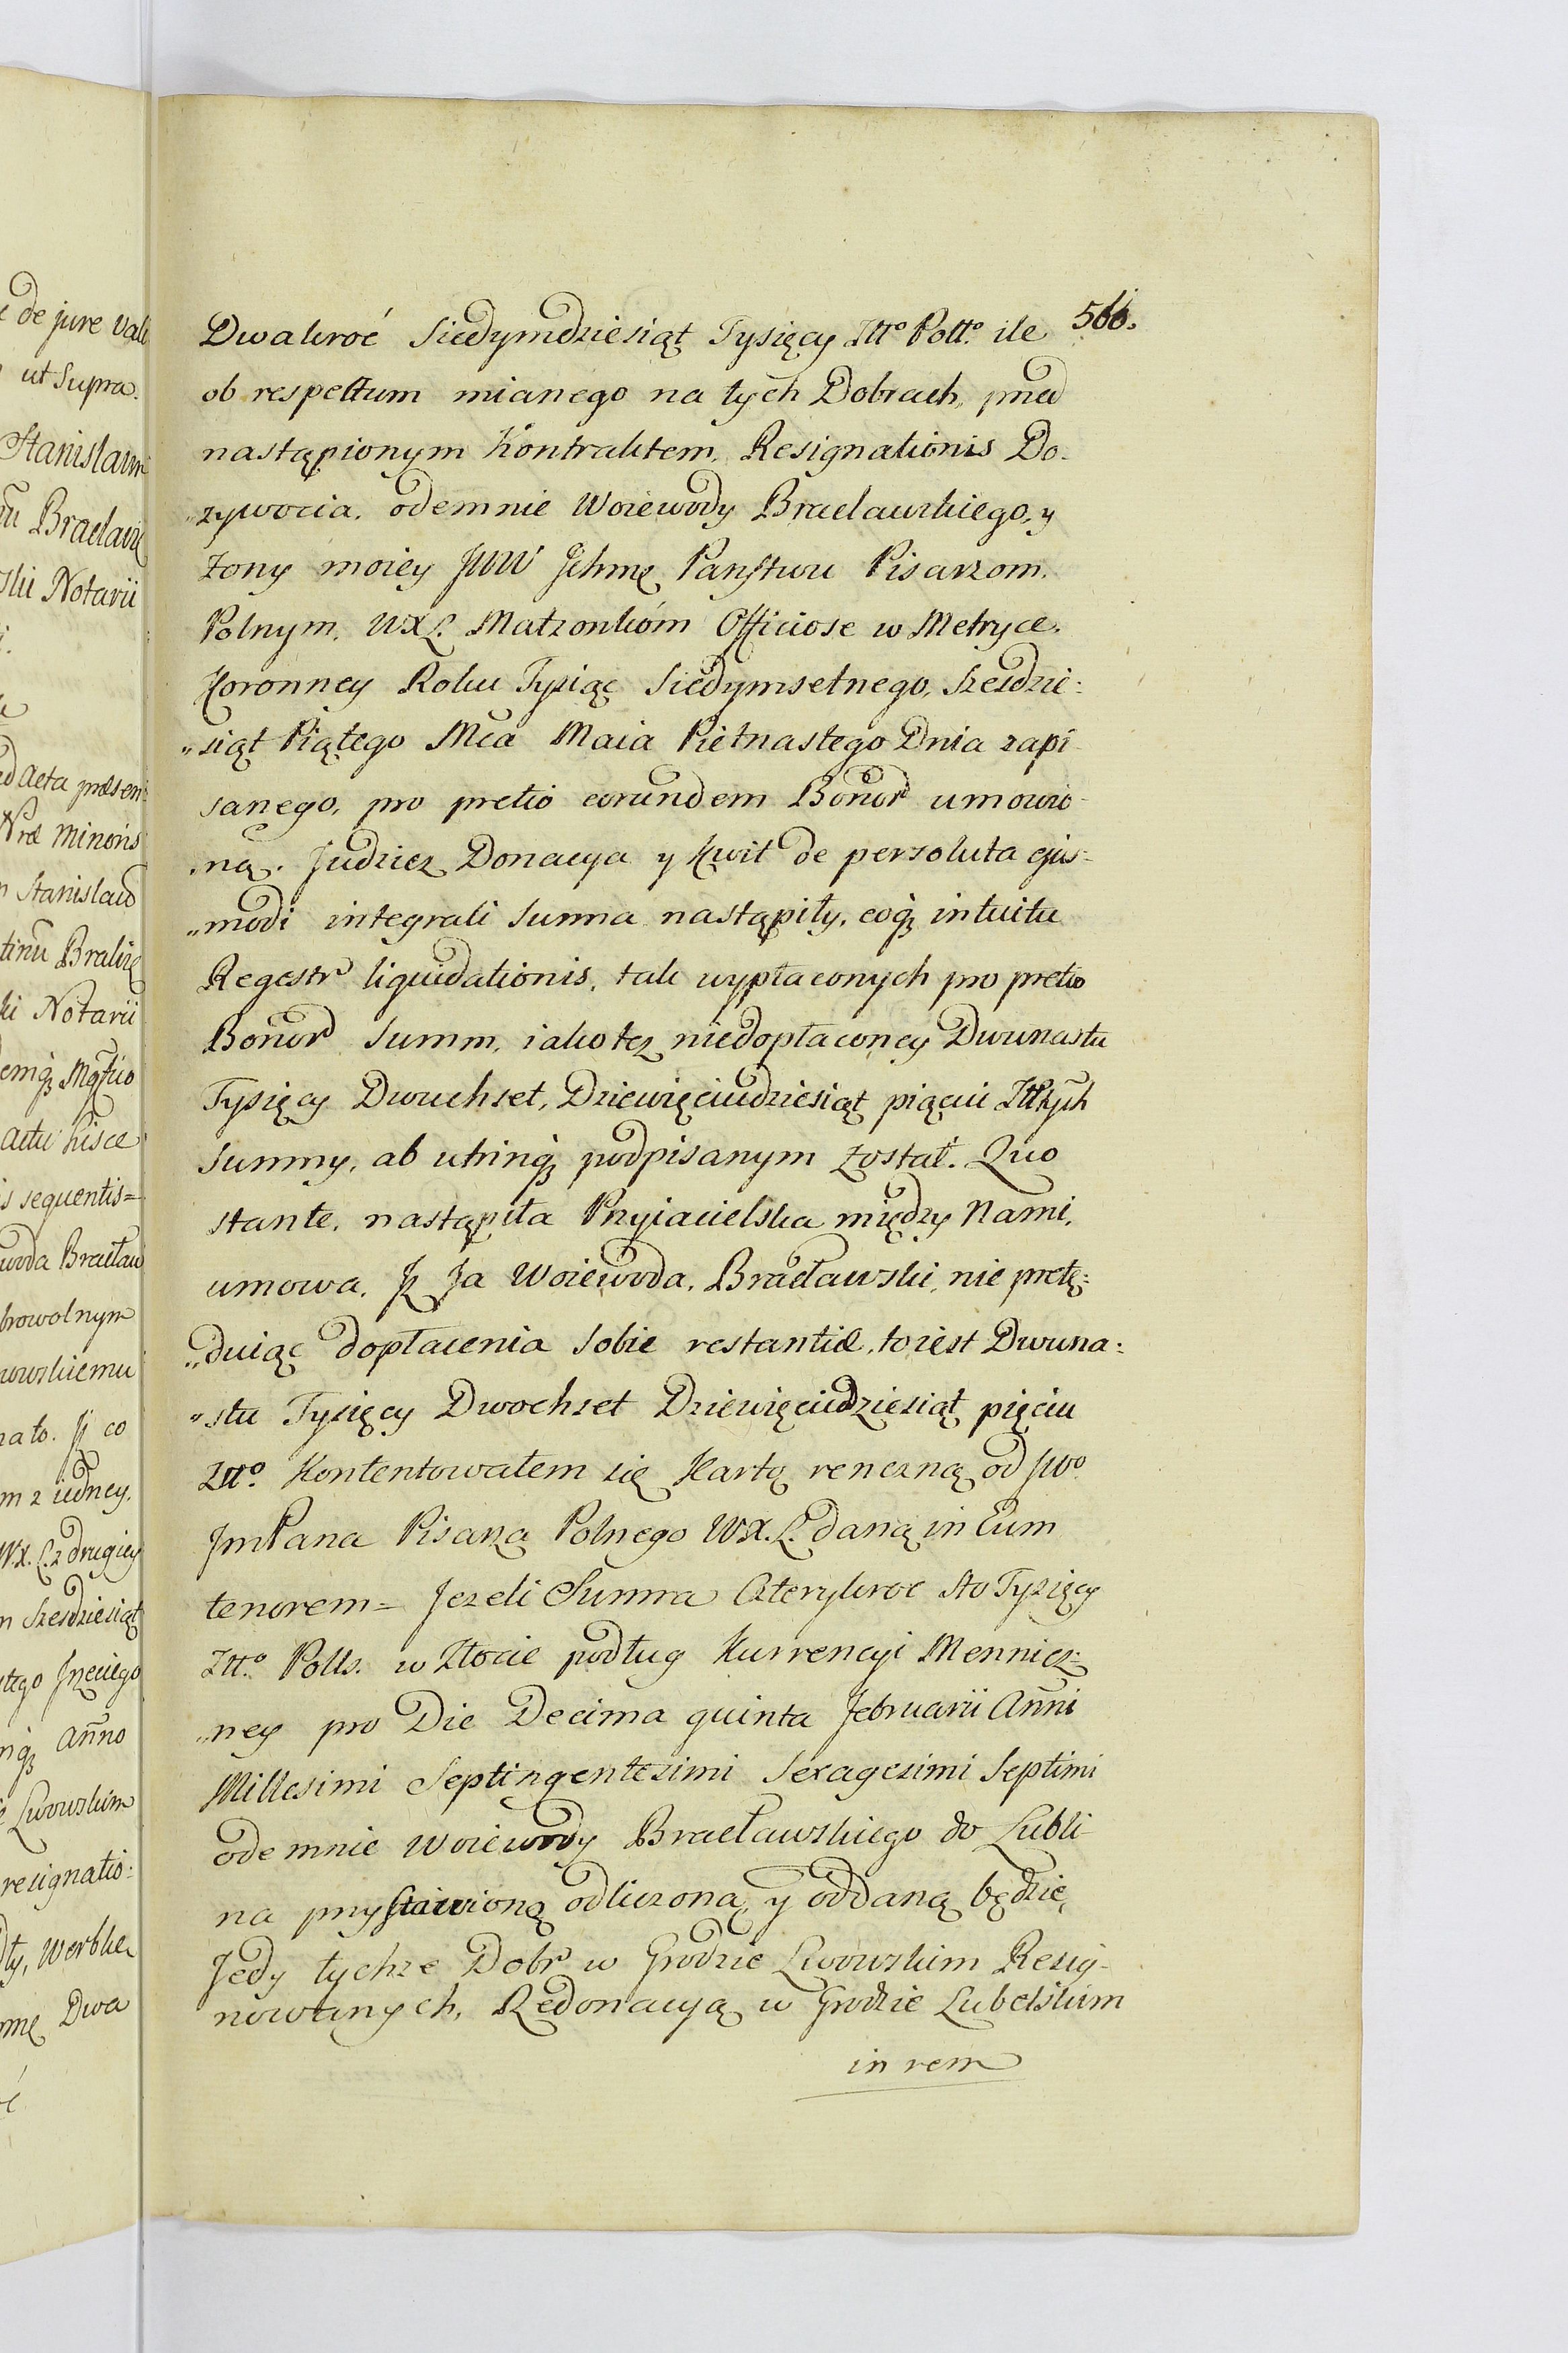 566.
Dwakroć Siedymdziesiąt Tysięcy Złto Poltt. ile
ob respectum mianego na tych Dobrach, przed
nastąpionym Kontraktem, Resignationis Do-
„zywocia, odemnie Woiewody Bracławskiego, y
Zony moiey JWW Ichmę Państwu Pisarzom
Polnym, WXL. Małzonkóm Officiose w Metryce
Koronney Roku Tysiąc Siedymsetnego, Szesdzie:
„siąt Piątego Mca Maia Pietnastego Dnia zapi-
sanego, pro pretio eorundem Bonor umowio-
„ną. Judziez Donacya y Kwit de persoluta ejus-
„modi integrali Summa nastąpiły, eoq; intuitu
Regestr liquidationis, tak wypłaconych pro pretio
Bonor Summ, iako tez niedopłaconey Dwunastu
Tysięcy Dwuchset, Dziewięciudziesiąt pięciu Złttych
Summy, ab utrinq; podpisanym został. Quo
stante, nastąpiła Przyiacielska między Nami,
umowa, Iz Ja Woiewoda, Bracławski, nie pretę:
„duiąc dopłacenia Sobie restantiæ, to iest Dwuna:
„stu Tysięcy Dwochset Dziewięciudziesiąt pięciu
Złto. Kontentowałem się Kartą ręnczną od JWo
JmPana Pisarza Polnego WX.L. daną in Eum
tenorem= Jezeli Summa Czterykroc sto Tysięcy
Złt.o Polls. w Złocie podług Kurrencyi Mennicz:
„ney pro Die Decima quinta Februarii Anni
Millesimi Septingentesimi Sexagesimi Septimi
odemnie Woiewody Bracławskiego do Lubli-
na przystawioną odliczoną, y oddaną będzie,
Jedy tychze Dobr w Grodzie Lwowskim Resig-
nowanych, Redonacyą w Grodzie Lubelskim
in rem